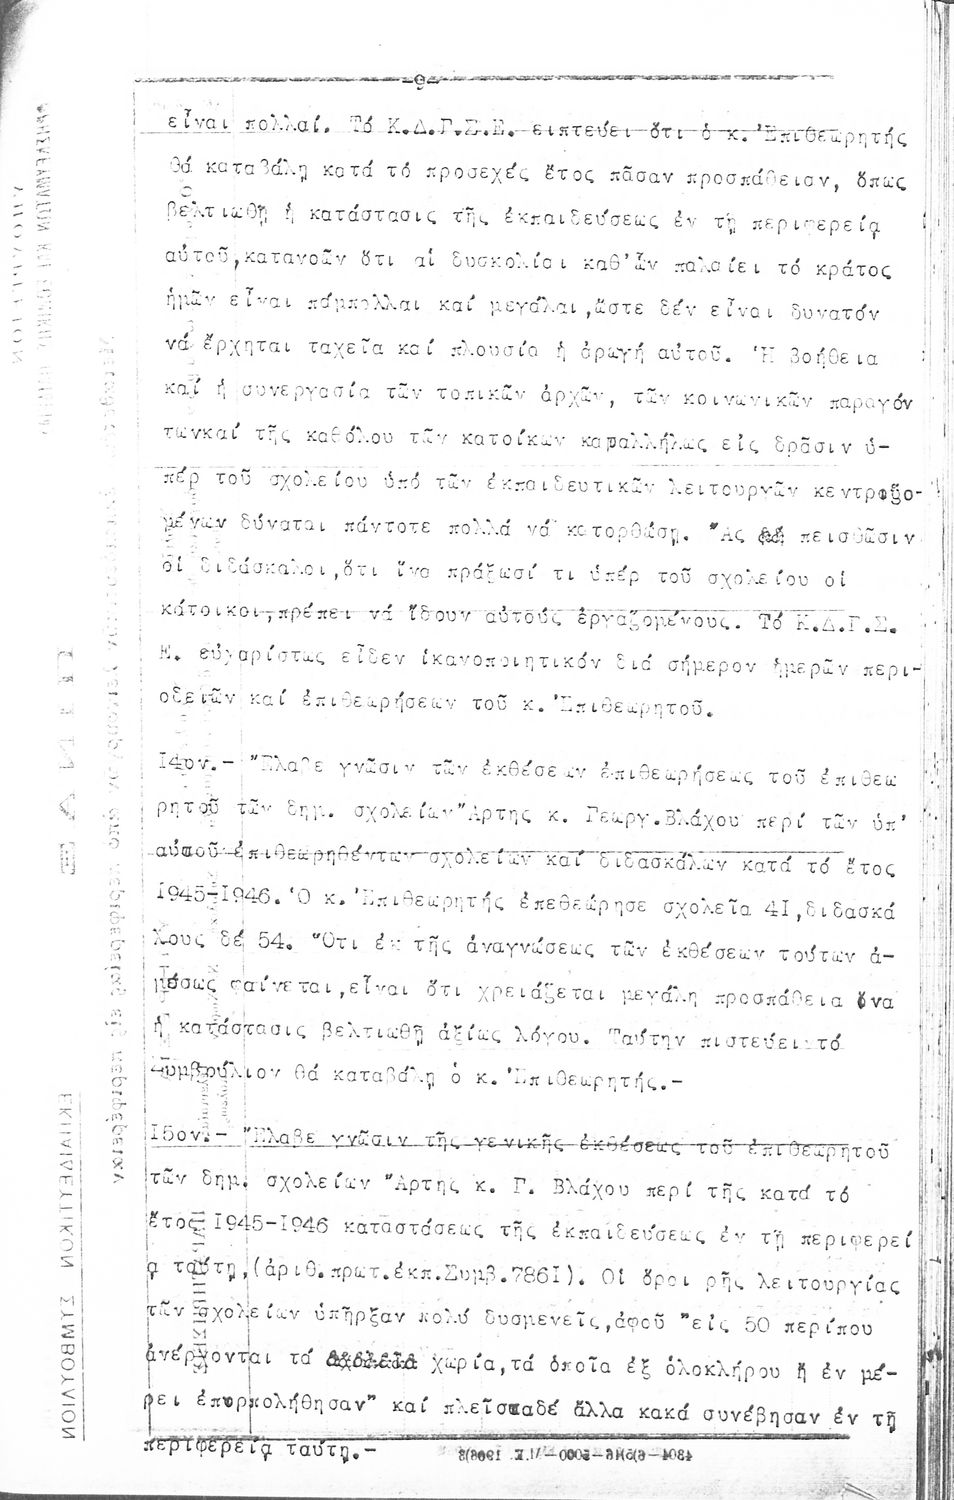 -9-
εἶναι πολλαί. Τό Κ.Δ.Γ.Σ.Ε. ειπτεύει ὅτι ὁ κ. Ἐπιθεωρητής
θά καταβάλῃ κατά τό προσεχές ἔτος πᾶσαν προσπάθειαν, ὅπως
βελτιωθῇ ἡ κατάστασις τῆς ἐκπαιδεύσεως ἐν τῇ περιφερείᾳ
αὐτοῦ,κατανοῶν ὅτι αἱ δυσκολίαι καθ'ὧν παλαίει τό κράτος
ἡμῶν εἶναι πάμπολλαι καί μεγάλαι,ὥστε δέν εἶναι δυνατόν
νά ἔρχηται ταχεῖα καί πλουσία ἡ ἀρωγή αὐτοῦ. Ἡ βοήθεια
καί ἡ συνεργασία τῶν τοπικῶν ἀρχῶν, τῶν κοινωνικῶν παραγόν
τωνκαί τῆς καθόλου τῶν κατοίκων καραλλήλως εἰς δρᾶσιν ὑ-
πέρ τοῦ σχολείου ὑπό τῶν ἐκπαιδευτικῶν λειτουργῶν κεντριζο-
μένων δύναται πάντοτε πολλά νά κατορθώσῃ. Ἄς πεισθῶσιν
οἱ διδάσκαλοι,ὅτι ἵνα πράξωσί τι ὑπέρ τοῦ σχολείου οἱ
κάτοικοι,πρέπει νά ἴδουν αὐτούς ἐργαζομένους. Τό Κ.Δ.Γ.Σ.
Ε. εὐχαρίστως εἶδεν ἱκανοποιητικόν διά σήμερον ἡμερῶν περι-
οδειῶν καί ἐπιθεωρήσεων τοῦ κ. Ἐπιθεωρητοῦ.
14ον.- Ἔλαβε γνῶσιν τῶν ἐκθέσεων ἐπιθεωρήσεως τοῦ ἐπιθεω
ρητοῦ τῶν δημ. σχολείων Ἄρτης κ. Γεωργ.Βλάχου περί τῶν ὑπ'
αὐτοῦ ἐπιθεωρηθέντων σχολείων καί διδασκάλων κατά τό ἔτος
1945-1946. Ὁ κ. Ἐπιθεωρητής ἐπεθεώρησε σχολεῖα 41,διδασκά
λους δέ 54. Ὅτι ἐκ τῆς ἀναγνώσεως τῶν ἐκθέσεων τούτων ἀ-
μέσως φαίνεται,εἶναι ὅτι χρειάζεται μεγάλη προσπάθεια ἵνα
ἡ κατάστασις βελτιωθῇ ἀξίως λόγου. Ταύτην πιστεύει τό
Συμβούλιον θά καταβάλῃ ὁ κ. Ἐπιθεωρητής.-
15ον.- Ἔλαβε γνῶσιν τῆς γενικῆς ἐκθέσεως τοῦ ἐπιθεωρητοῦ
τῶν δημ. σχολείων Ἄρτης κ. Γ. Βλάχου περί τῆς κατά τό
ἔτος 1945-1946 καταστάσεως τῆς ἐκπαιδεύσεως ἐν τῇ περιφερεί
ᾳ ταύτῃ,(ἀριθ.πρωτ.ἐκπ.Συμβ.7861). Οἱ ὅροι ρῆς λειτουργίας
τῶν σχολείων ὑπῆρξαν πολύ δυσμενεῖς,ἀφοῦ "εἰς 50 περίπου
ἀνέρχονται τά χωρία,τά ὁποῖα ἐξ ὁλοκλήρου ἤ ἐν μέ-
ρει ἐπυρπολήθησαν" καί πλεῖσταδέ ἄλλα κακά συνέβησαν ἐν τῇ
περιφερείᾳ ταύτῃ.-
ΕΚΠΑΙΔΕΥΤΙΚΟΝ ΣΥΜΒΟΥΛΙΟΝ